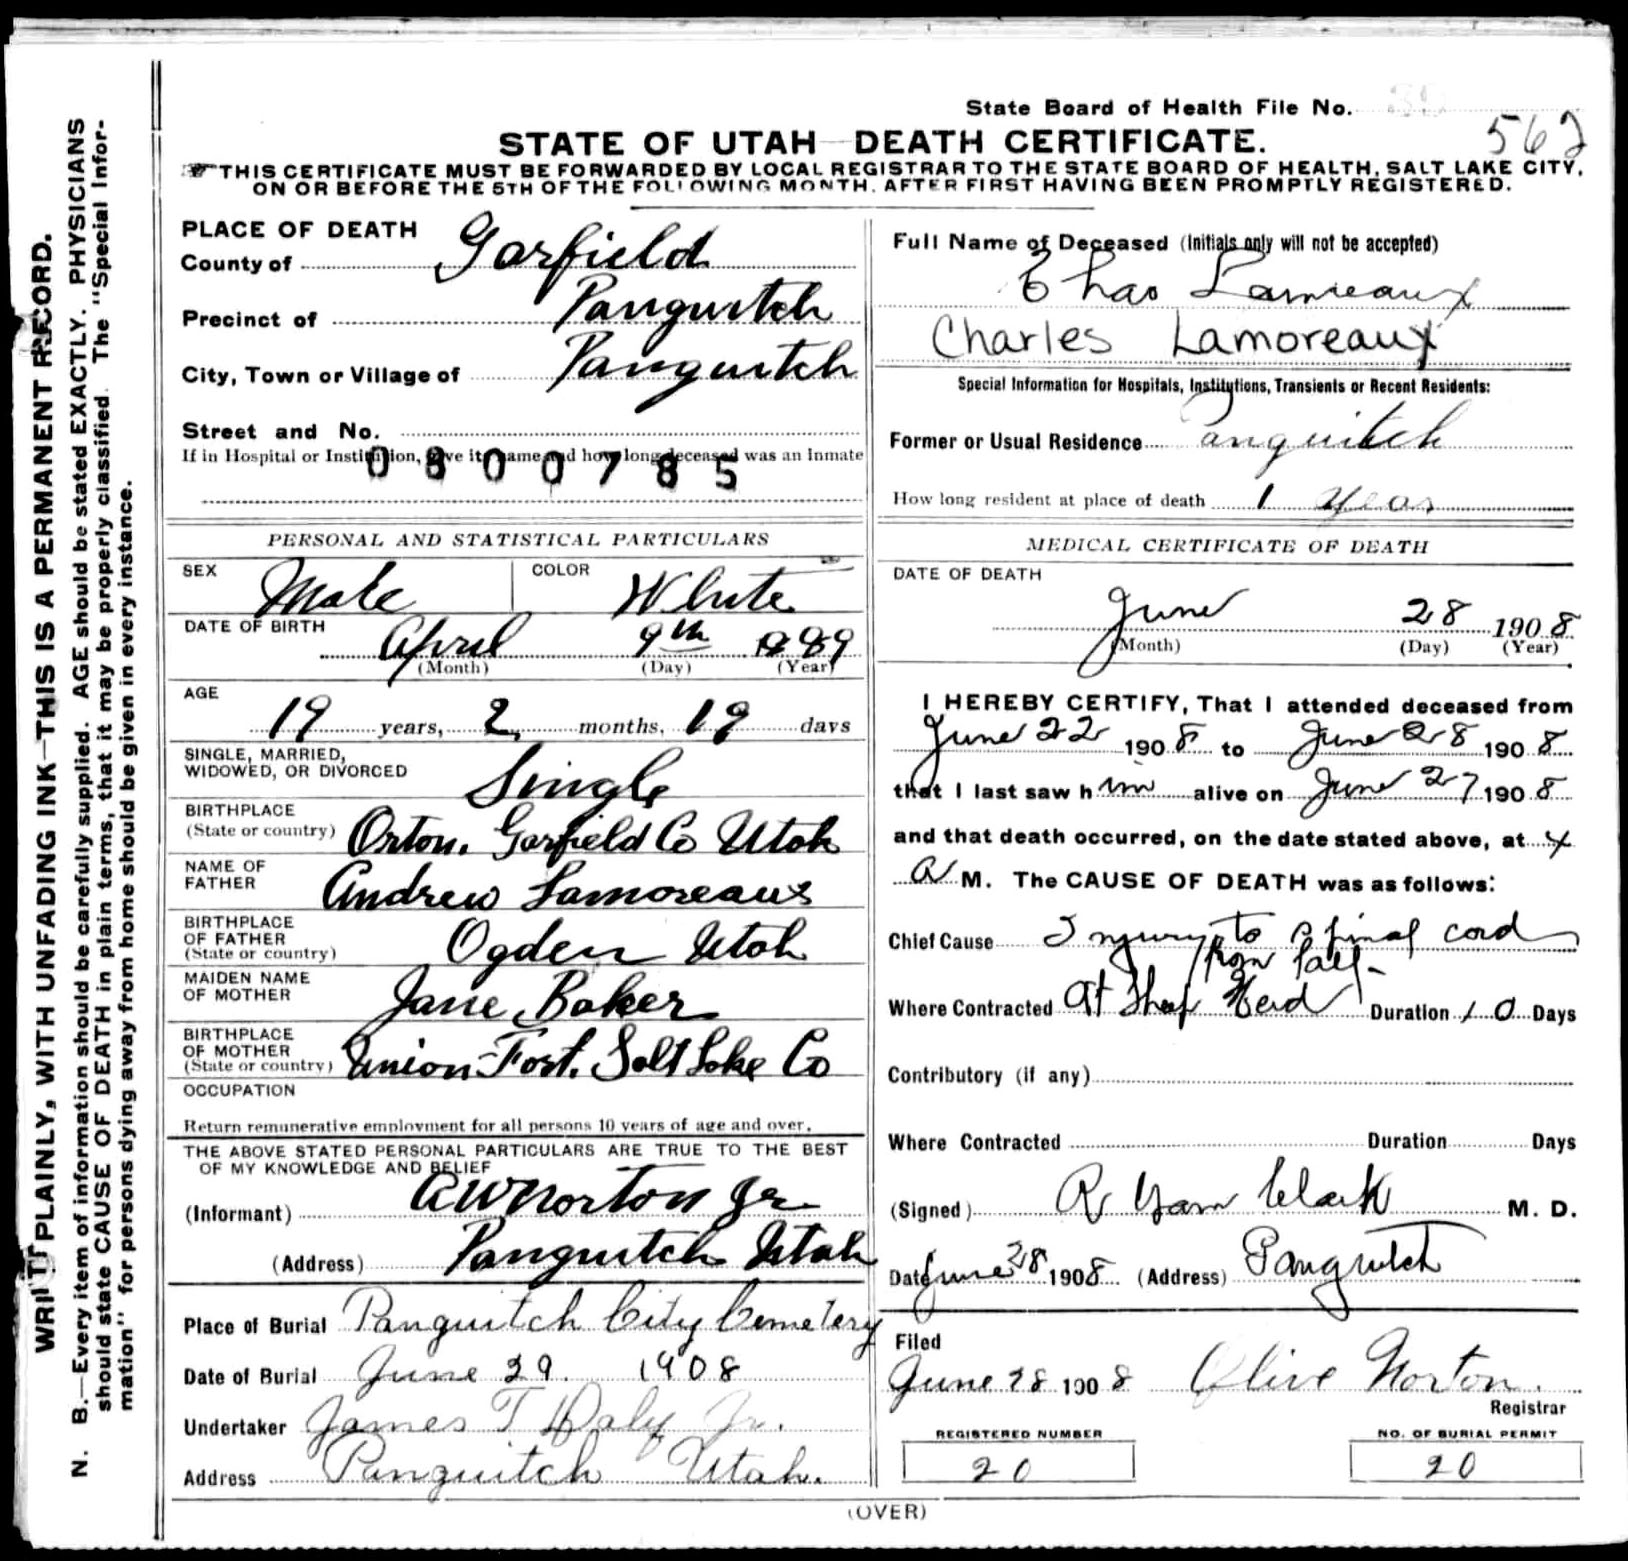 State Board of Health File No.
562
STATE OF UTAH—DEATH CERTIFICATE.
☞ THIS CERTIFICATE MUST BE FORWARDED BY LOCAL REGISTRAR TO THE STATE BOARD OF HEALTH, SALT LAKE CITY,
ON OR BEFORE THE 5TH OF THE FOLLOWING MONTH, AFTER FIRST HAVING BEEN PROMPTLY REGISTERED.
WRITE PLAINLY, WITH UNFADING INK—THIS IS A PERMANENT RECORD.
N. B.—Every item of information should be carefully supplied. AGE should be stated EXACTLY. PHYSICIANS
should state CAUSE OF DEATH in plain terms, that it may be properly classified. The "Special Infor-
mation" for persons dying away from home should be given in every instance.
PLACE OF DEATH
County of Garfield
Precinct of Panguitch
City, Town or Village of Panguitch
Street and No.
If in Hospital or Institution, give its name and how long deceased was an Inmate
0800785
PERSONAL AND STATISTICAL PARTICULARS
SEX Male COLOR White
DATE OF BIRTH April 9th 1889
(Month) (Day) (Year)
AGE
19 years, 2 months, 19 days
SINGLE, MARRIED,
WIDOWED, OR DIVORCED Single
BIRTHPLACE
(State or country) Orton, Garfield Co Utah
NAME OF
FATHER Andrew Lamoreaux
BIRTHPLACE
OF FATHER
(State or country) Ogden Utah
MAIDEN NAME
OF MOTHER Jane Baker
BIRTHPLACE
OF MOTHER
(State or country) Union Fort. Salt Lake Co
OCCUPATION
Return remunerative employment for all persons 10 years of age and over.
THE ABOVE STATED PERSONAL PARTICULARS ARE TRUE TO THE BEST
OF MY KNOWLEDGE AND BELIEF
(Informant) A W Norton Jr
(Address) Panguitch Utah
Place of Burial Panguitch City Cemetery
Date of Burial June 29. 1908
Undertaker James T Daly Jr.
Address Panguitch Utah.
Full Name of Deceased (Initials only will not be accepted)
Chas Lamreaux
Charles Lamoreaux
Special Information for Hospitals, Institutions, Transients or Recent Residents:
Former or Usual Residence Panguitch
How long resident at place of death 1 Year
MEDICAL CERTIFICATE OF DEATH
DATE OF DEATH
June 28 1908
(Month) (Day) (Year)
I HEREBY CERTIFY, That I attended deceased from
June 22 1908 to June 28 1908
that I last saw him alive on June 27 1908
and that death occurred, on the date stated above, at 4
A M. The CAUSE OF DEATH was as follows:
Chief Cause Injury to spinal cord
from fall
Where Contracted At Sheep Herd Duration 10 Days
Contributory (if any)
Where Contracted Duration Days
(Signed) R Clark M. D.
Date June 28 1908 (Address) Panguitch
Filed
June 28 1908 Olive Norton.
Registrar
REGISTERED NUMBER NO. OF BURIAL PERMIT
20 20
(OVER)